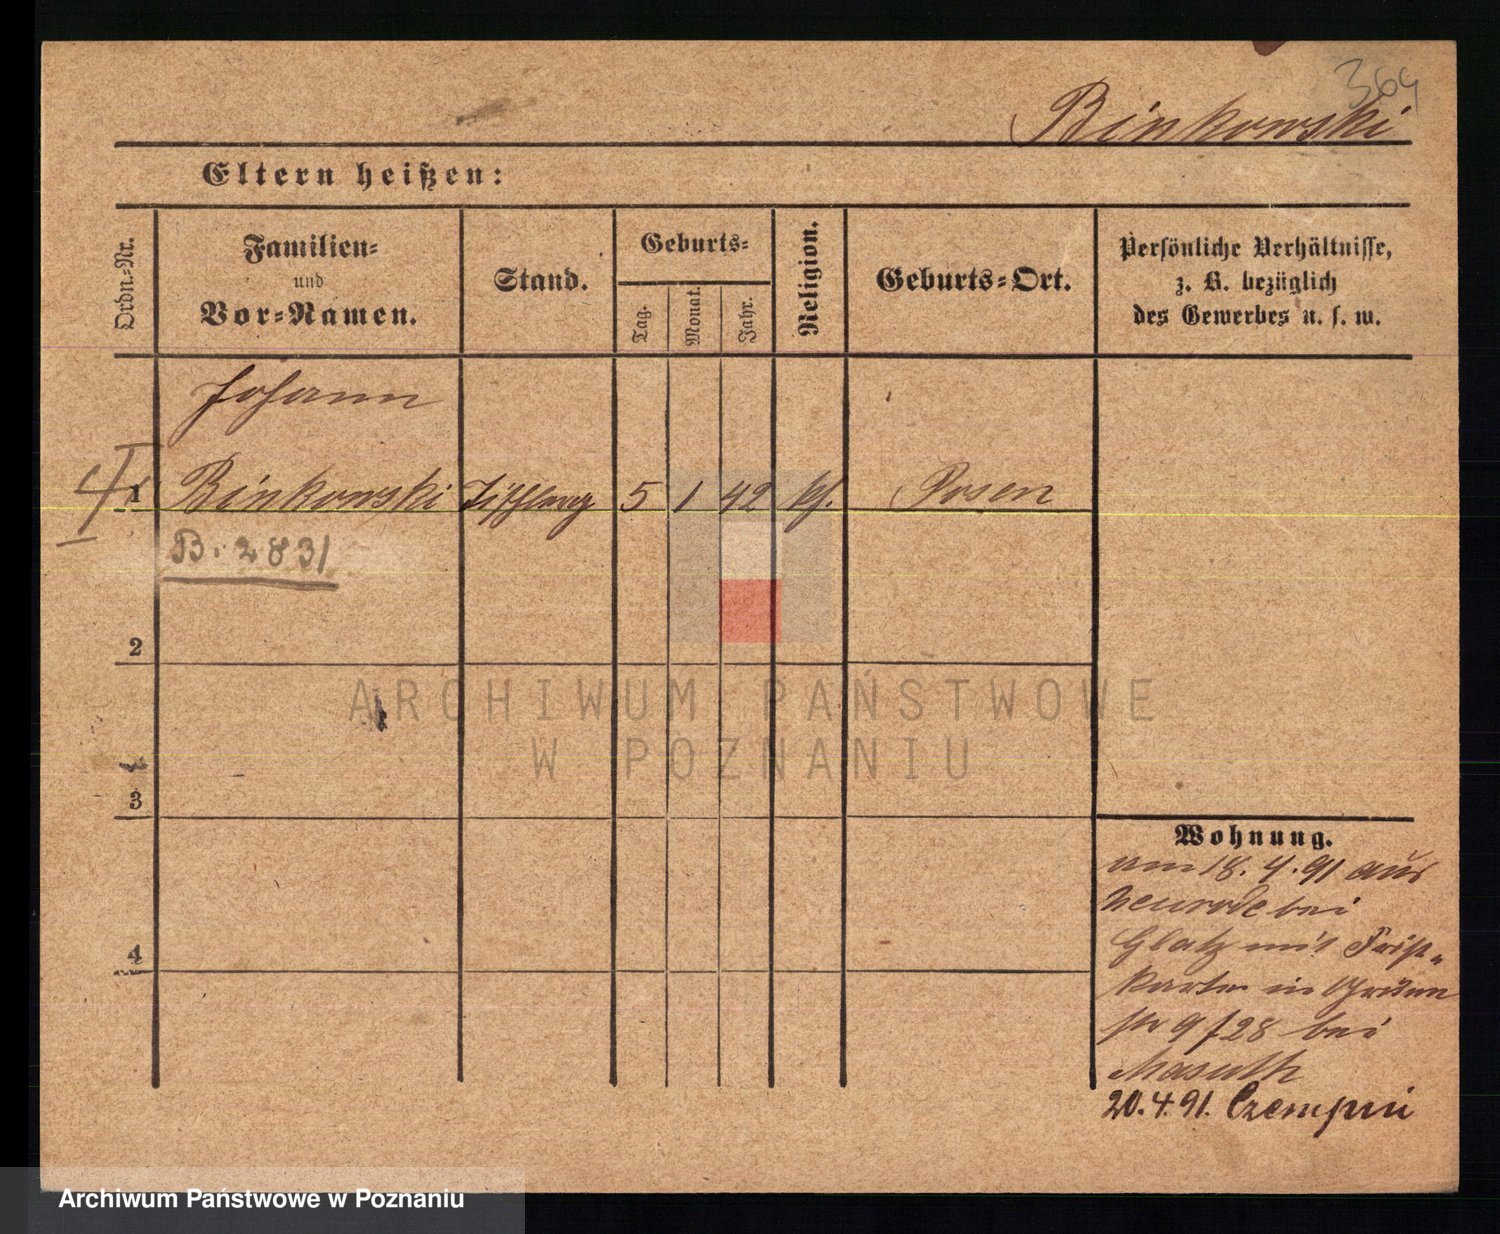 364
Binkowski
Eltern heißen:
Ordn.-Nr.
Familien-
und
Vor-Namen.
Stand.
Geburts-
Tag.
Monat.
Jahr.
Religion.
Geburts-Ort.
Persönliche Verhältnisse,
z. B. bezüglich
des Gewerbes u. s. w.
Johann
1 Binkowski 5 1 42 kf. Posen
B. 2831
2
3
4
ARCHIWUM PAŃSTWOWE
W POZNANIU
Wohnung.
am 18. 4. 91 aus
Neurode bei
Glatz mit
karte in
9/28 bei
Masuth
20.4.91. Czempin
Archiwum Państwowe w Poznaniu